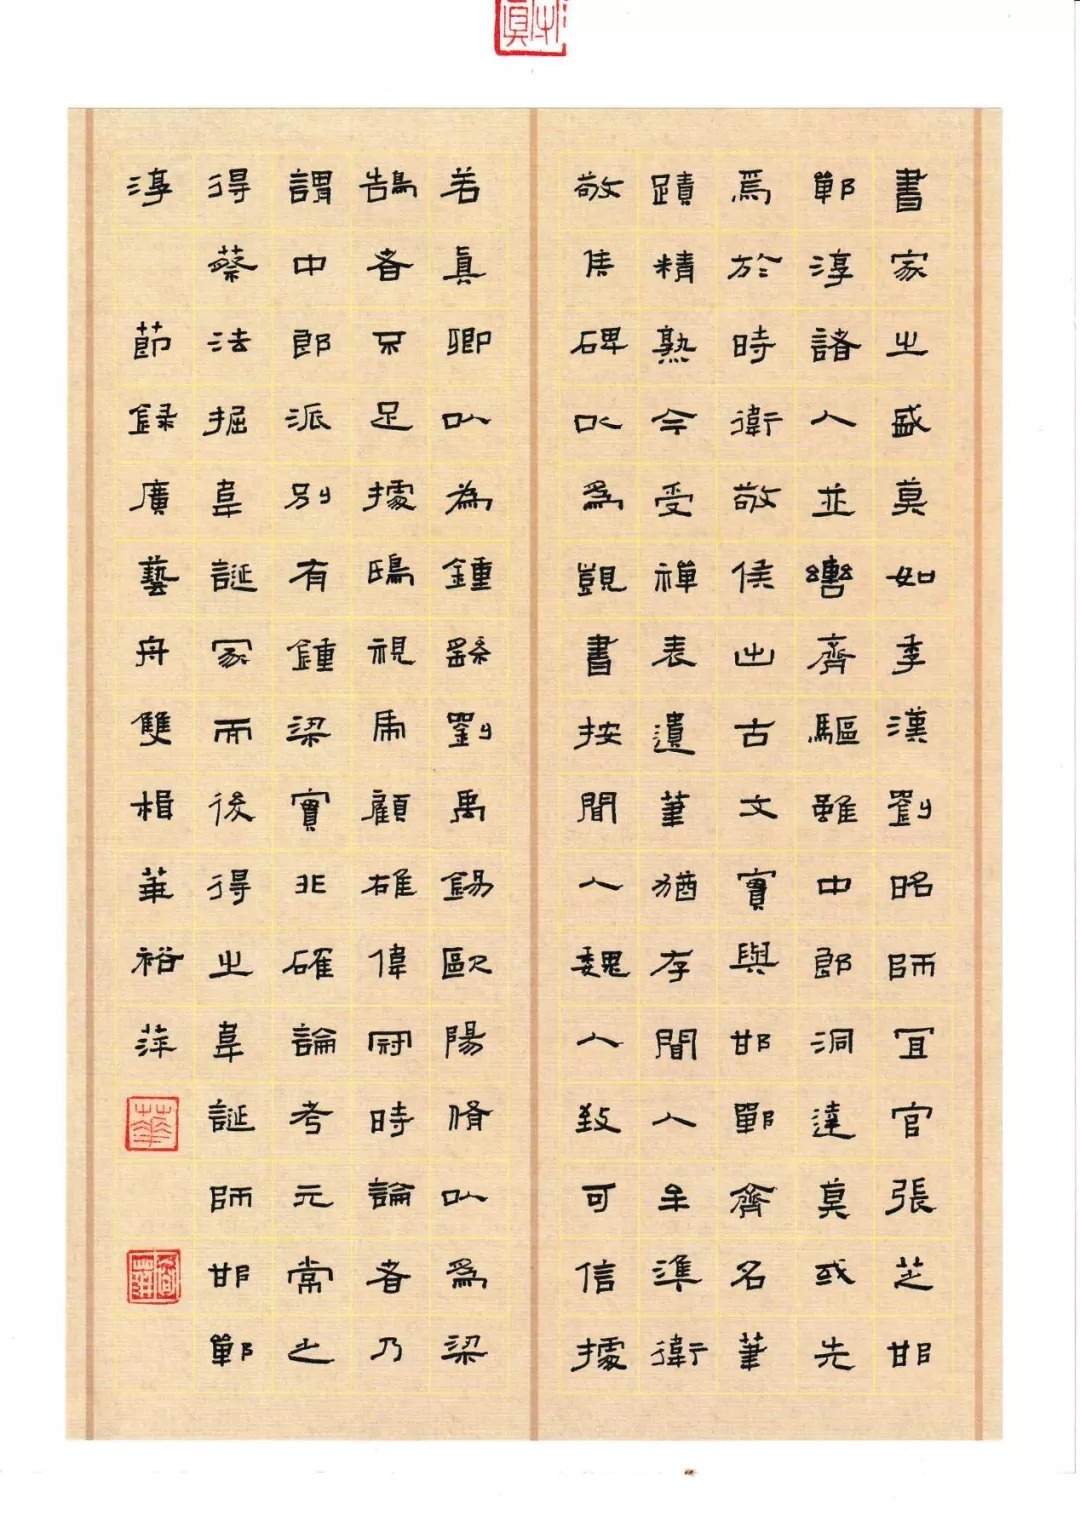 書家之盛莫如季漢劉昭師宜官張芝邯
鄲淳諸人並轡齊驅雖中郎洞達莫或先
焉於時衛敬侯出古文實與邯鄲齊名筆
蹟精熟今受禪表遺筆猶存聞人牟準衛
敬侯碑以為覬書按聞人魏人致可信據
若真卿以為鍾繇劉禹錫歐陽脩以為梁
鵠者不足據鴟視虎顧雄偉冠時論者乃
謂中郎派別有鍾梁實非確論考元常之
得蔡法掘韋誕冢而後得之韋誕師邯鄲
淳 節録廣藝舟雙楫華裕萍
華
裕萍